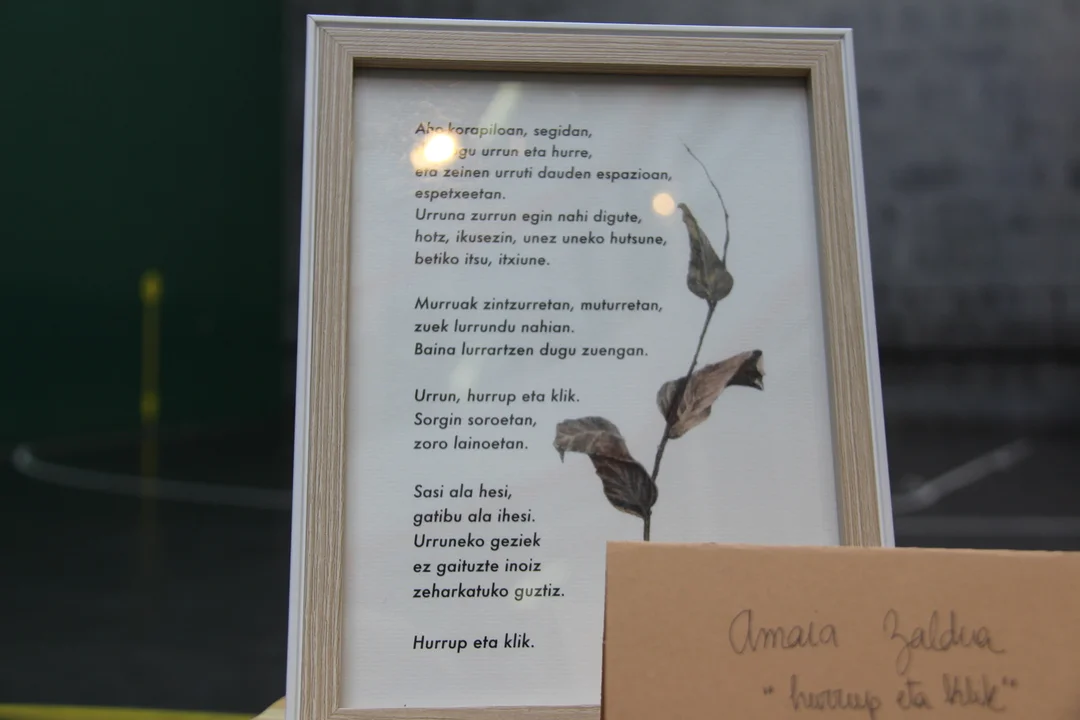 Aho korapiloan, segidan,
urrun eta hurre,
eta zeinen urruti dauden espazioan,
espetxeetan.
Urruna zurrun egin nahi digute,
hotz, ikusezin, unez uneko hutsune,
betiko itsu, itxiune.
Murruak zintzurretan, muturretan,
zuek lurrundu nahian.
Baina lurrartzen dugu zuengan.
Urrun, hurrup eta klik.
Sorgin soroetan,
zoro lainoetan.
Sasi ala hesi,
gatibu ala ihesi.
Urruneko geziek
ez gaituzte inoiz
zeharkatuko guztiz.
Hurrup eta klik.
Amaia Zaldua
"hurrup eta klik"